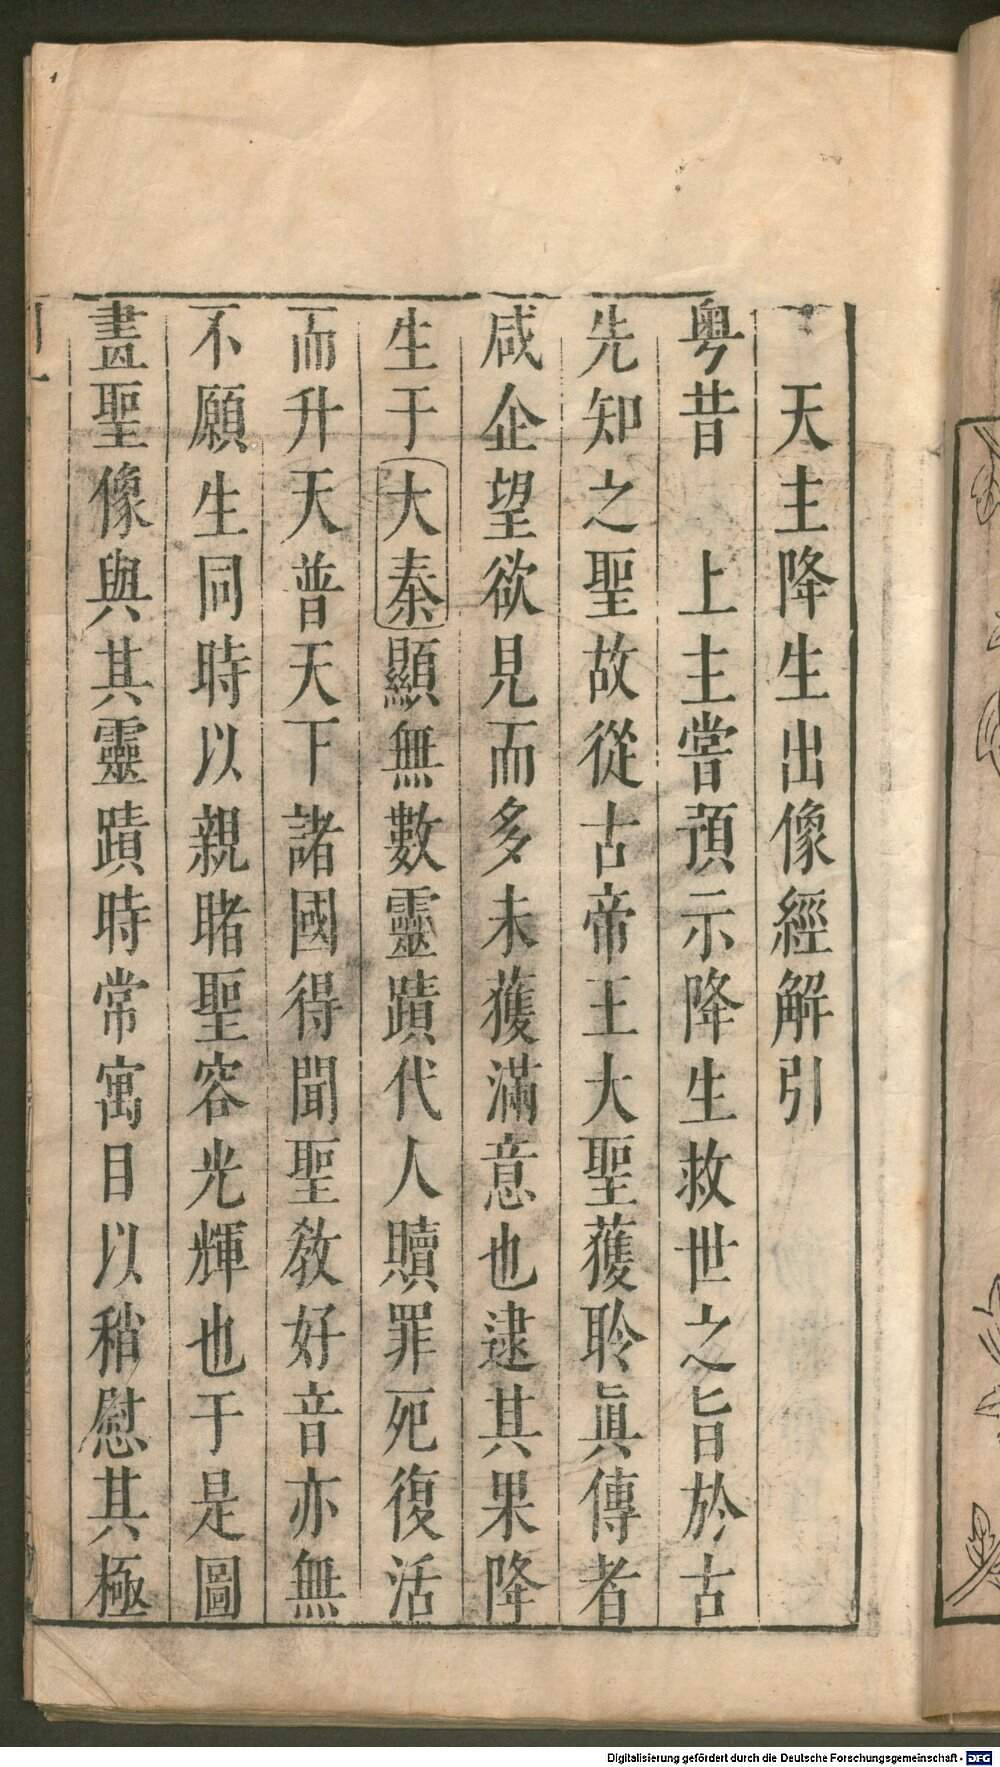 天主降生出像經解引
粵昔　上主嘗預示降生救世之旨於古
先知之聖故從古帝王大聖獲聆眞傳者
咸企望欲見而多未獲滿意也逮其果降
生于大秦顯無數靈蹟代人贖罪死復活
而升天普天下諸國得聞聖敎好音亦無
不願生同時以親睹聖容光輝也于是圖
畫聖像與其靈蹟時常寓目以稍慰其極
Digitalisierung gefördert durch die Deutsche Forschungsgemeinschaft - DFG